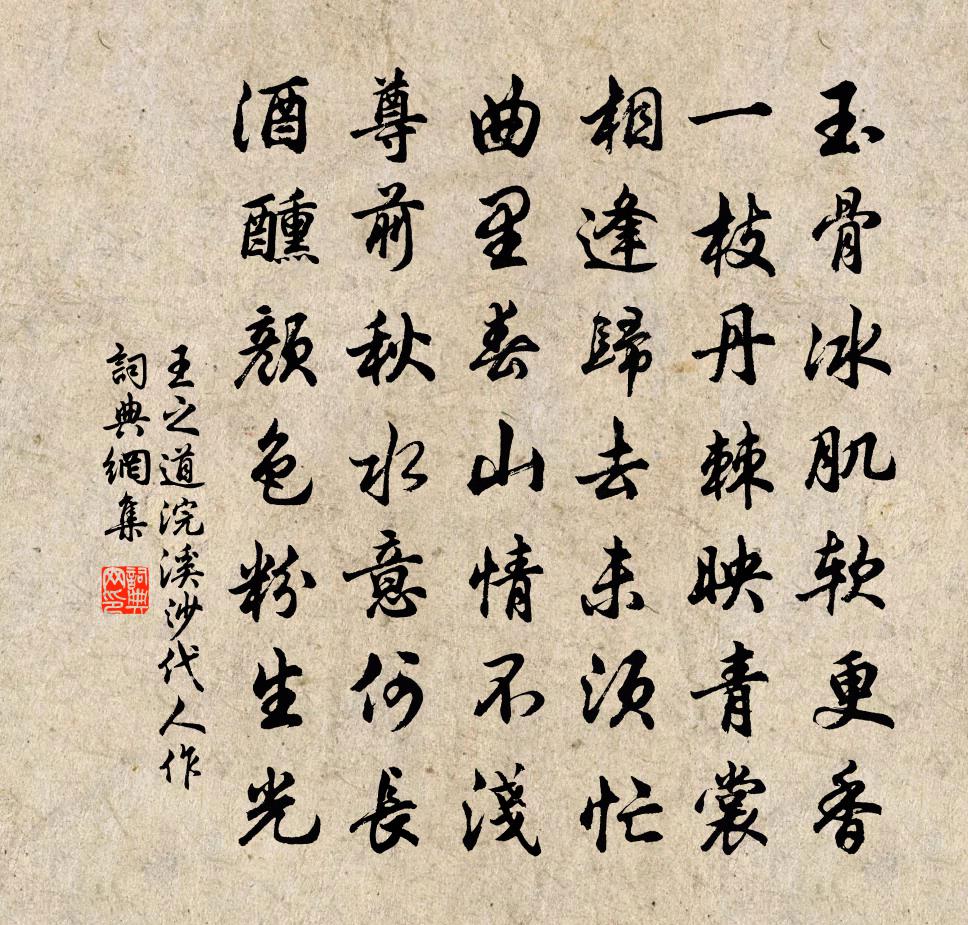 玉骨冰肌软更香
一枝丹棘映青裳
相逢歸去未须忙
曲里春山情不淺
尊前秋水意何長
酒醺颜色粉生光
王之道浣溪沙代人作
詞典網集
詞典网印